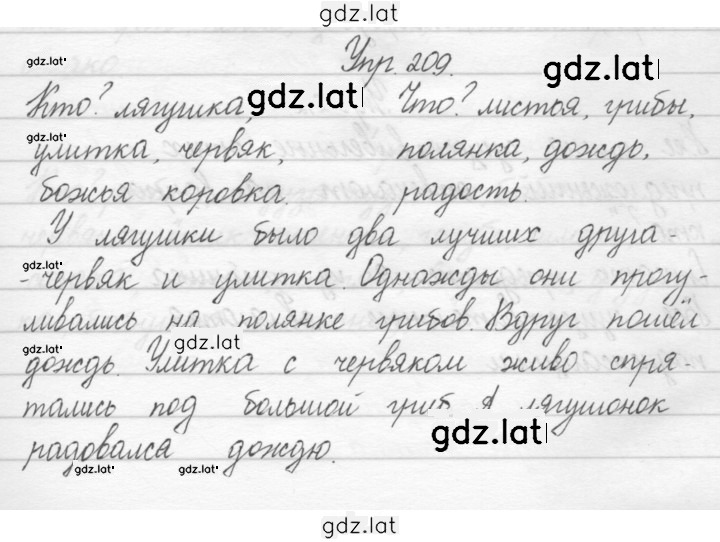 gdz.lat
gdz.lat
Упр. 209.
gdz.lat
Кто? лягушка, gdz.lat Что? листья, грибы,
gdz.lat
улитка, червяк, полянка, дождь,
божья коровка. радость.
gdz.lat
У лягушки было два лучших друга-
gdz.lat
-червяк и улитка. Однажды они прогу-
ливались на полянке грибов. Вдруг пошёл
gdz.lat gdz.lat
дождь. Улитка с червяком живо спря-
тались под большой гриб А лягушонок
gdz.lat
радовался дождю.
gdz.lat gdz.lat
gdz.lat